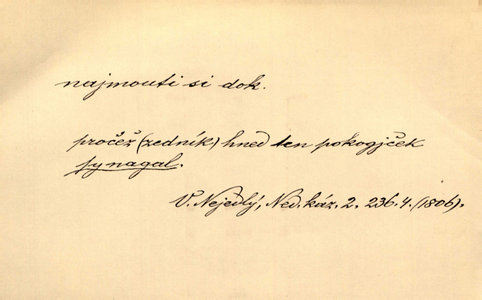 najmouti si dok.
pročež (zedník) hned ten pokogjček
sy nagal.
V. Nejedlý, Ned. káz. 2. 236. 4. (1806).